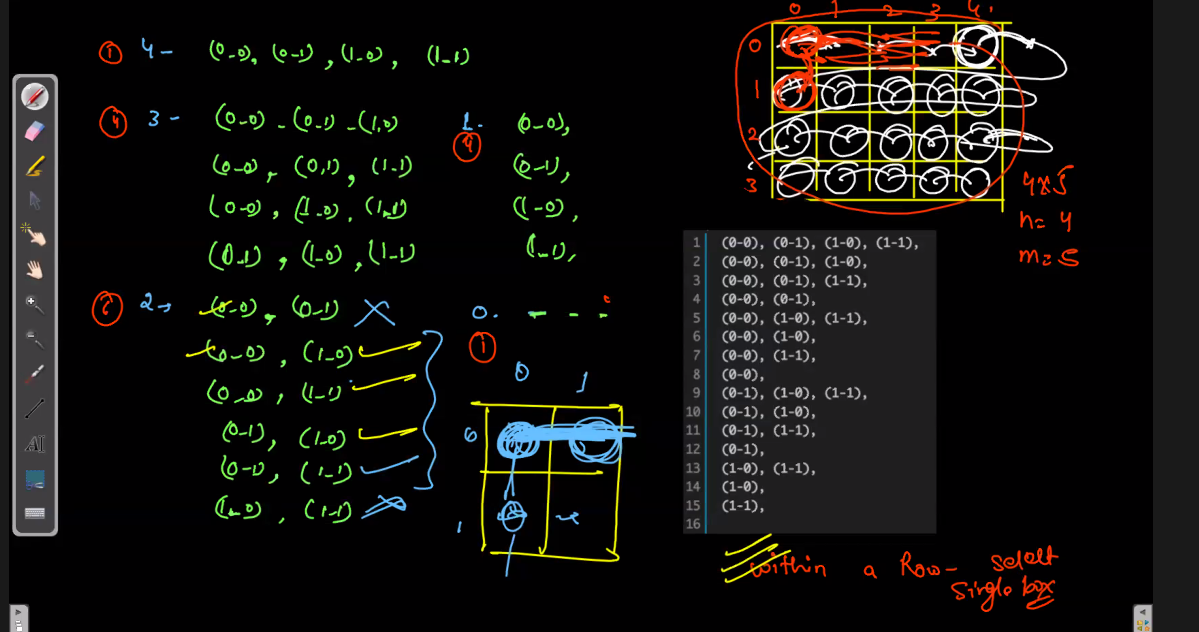 ① 4 - (0-0), (0-1), (1-0), (1-1)
④ 3 - (0-0) - (0-1) - (1,0)
(0-0), (0,1), (1-1)
(0-0), (1-0), (1-1)
(0-1), (1-0), (1-1)
⑥ 2 → (0-0), (0-1)
(0-0), (1-0)
(0-0), (1-1)
(0-1), (1-0)
(0-1), (1-1)
(1-0), (1-1)
1. (0-0),
④ (0-1),
(1-0),
(1-1),
0. - - -
①
0 1
0
1
0 1 2 3 4
0
1
2
3
4x5
n= 4
m= 5
1 (0-0), (0-1), (1-0), (1-1),
2 (0-0), (0-1), (1-0),
3 (0-0), (0-1), (1-1),
4 (0-0), (0-1),
5 (0-0), (1-0), (1-1),
6 (0-0), (1-0),
7 (0-0), (1-1),
8 (0-0),
9 (0-1), (1-0), (1-1),
10 (0-1), (1-0),
11 (0-1), (1-1),
12 (0-1),
13 (1-0), (1-1),
14 (1-0),
15 (1-1),
16
within a Row- select
single box